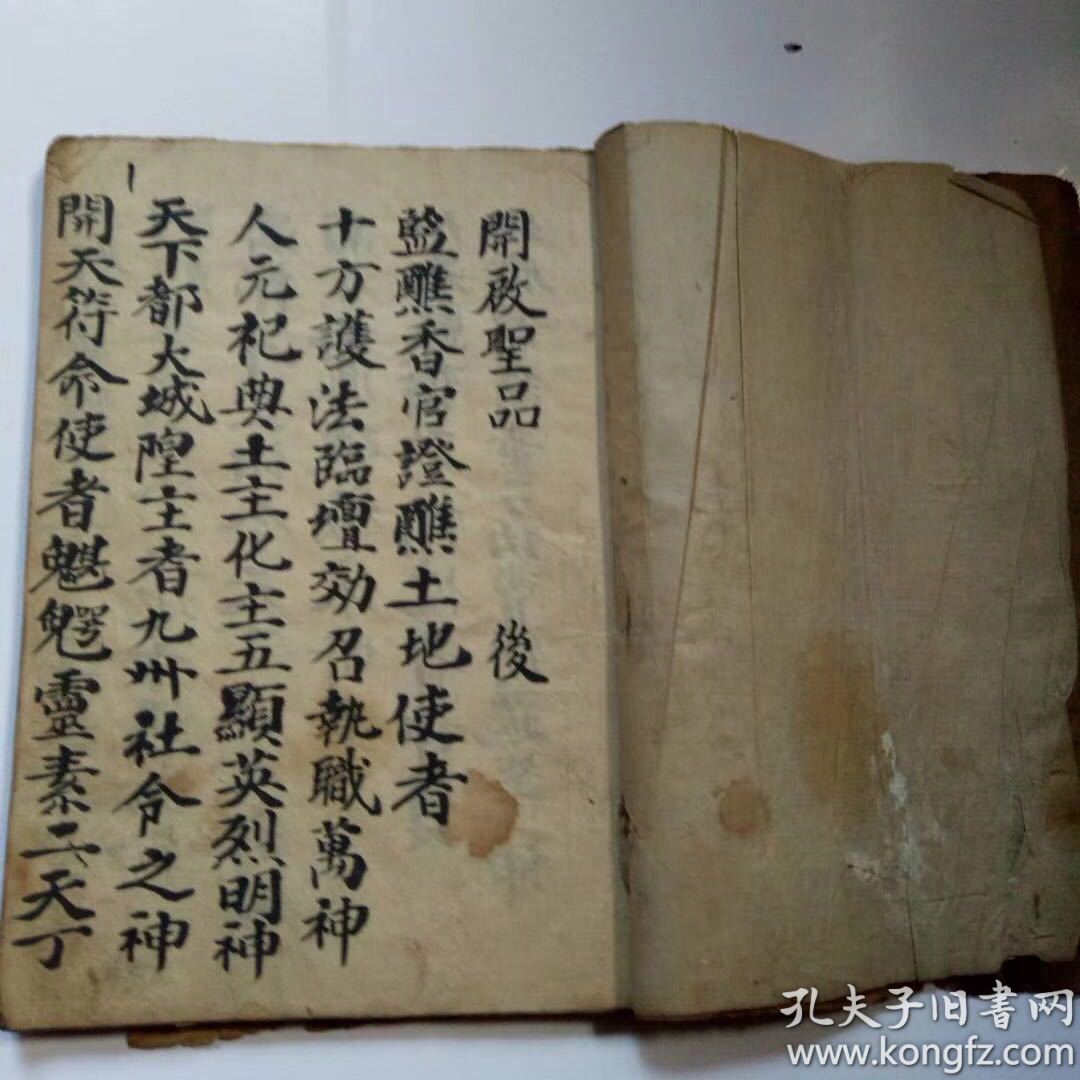 開啟聖品　後
監醮香官證醮土地使者
十方護法臨壇効召執職萬神
人元祀典土主化主五顯英烈明神
天下都大城隍主者九州社令之神
開天符命使者魁䰢靈素二天丁
孔夫子旧書网
www.kongfz.com